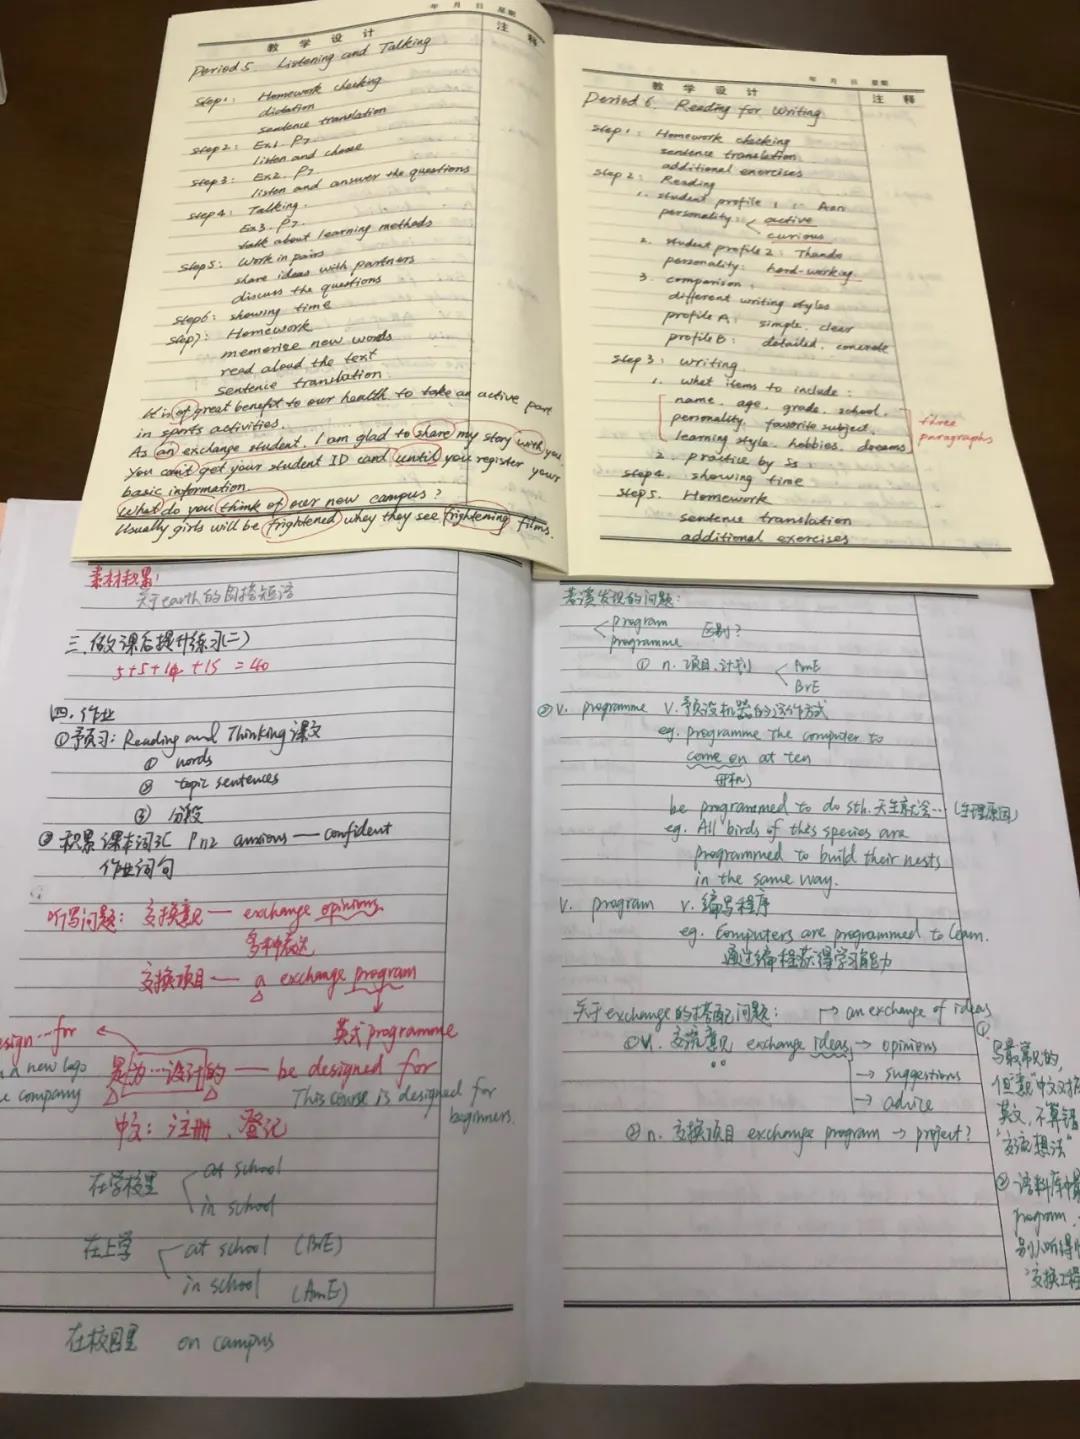 年 月 日 星期
教 学 设 计
注 释
Period 5 Listening and Talking
Step 1: Homework checking
dictation
sentence translation
Step 2: Ex1. P7
listen and choose
Step 3: Ex2. P7
listen and answer the questions
Step 4: Talking.
Ex3. P7
talk about learning methods
Step 5: Work in pairs
share ideas with partners
discuss the questions
Step 6: showing time
Step 7: Homework
memorize new words
read aloud the text
sentence translation
It is of great benefit to our health to take an active part
in sports activities.
As an exchange student, I am glad to share my story with you.
You can't get your student ID card until you register your
basic information.
What do you think of our new campus?
Usually girls will be frightened whey they see frightening films.
年 月 日 星期
教 学 设 计
注 释
Period 6. Reading for Writing
Step 1: Homework checking
sentence translation
additional exercises
Step 2: Reading
1. student profile 1:
personality: active
curious
2. student profile 2: Thando
personality: hard-working
3. comparison:
different writing styles
profile A: simple, clear
profile B: detailed, concrete
Step 3: writing
1. what items to include:
name, age, grade, school,
personality, favorite subject,
learning style, hobbies, dreams
three
paragraphs
2. practice by Ss:
Step 4. showing time
Step 5. Homework
sentence translation
additional exercises
素材积累:
关于earth的固搭短语
三、做课后提升练习(二)
5+5+14+15=40
四、作业
①预习: Reading and Thinking 课文
① words
② topic sentences
③ 分段
② 积累课本词汇 P112 anxious — confident
作业词句
听写问题: 交换意见 — exchange opinions
多种表达
交换项目 — a exchange program
英式 programme
esign … for
a new logo
company
是为…设计的 — be designed for
This course is designed for
beginners.
中文: 注册、登记
在学校里 at school
in school
在上学 at school (BrE)
in school (AmE)
在校园里 on campus
备课发现的问题:
program
programme 区别?
① n. 项目,计划 AmE
BrE
② v. programme v. 预设机器的运作方式
eg. programme the computer to
come on at ten
(开机)
be programmed to do sth. 天生就会… (生理原因)
eg. All birds of this species are
programmed to build their nests
in the same way.
v. program v. 编写程序
eg. Computers are programmed to learn.
通过编程获得学习能力
关于exchange的搭配问题: → an exchange of ideas
① v. 交流意见 exchange ideas → opinions
→ suggestions
→ advice
② n. 交换项目 exchange program → project?
①
写最常见的,
但"意见"中文对
英文,不算错
"交流想法"
② 语料库中最
program.
别人听得
"交换工程